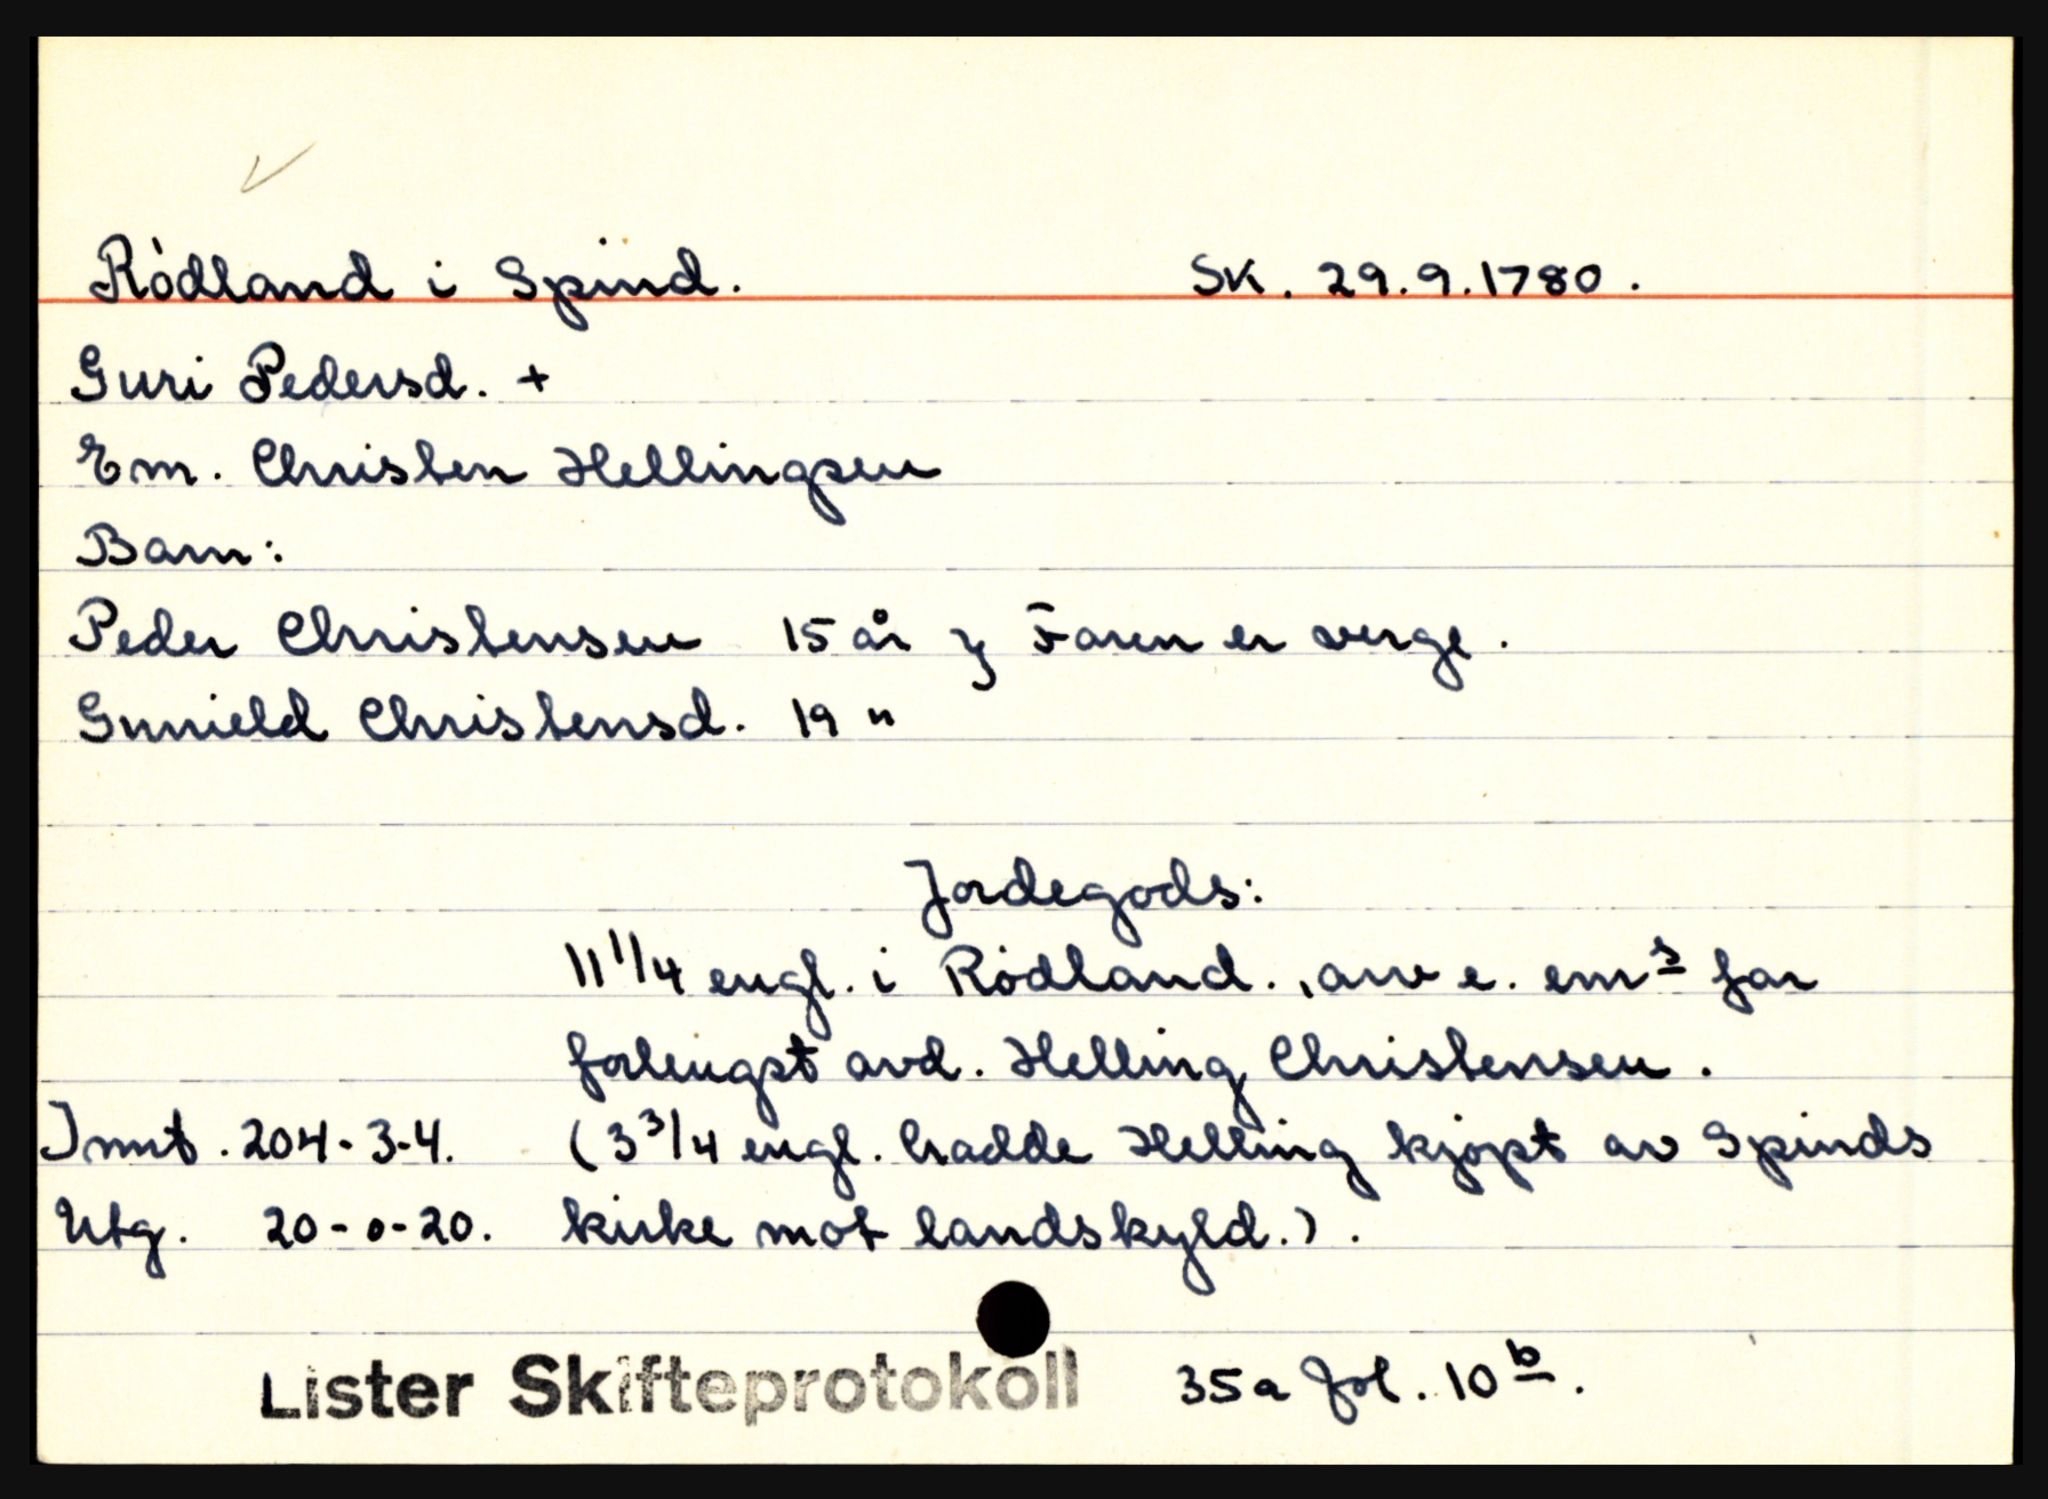 Rödland i Spind. SK. 29.9.1780.
Guri Pedersd. +
Em. Christen Hellingsen
Barn:
Peder Christensen 15 år } Faren er verge.
Gunield Christensd. 19 "
Jordegods:
11 1/4 engl. i Rödland., arv e. emˢ far
forlengst avd. Helling Christensen.
Innt. 204-3-4. (3 3/4 engl. hadde Helling kjøpt av Spinds
Utg. 20-0-20. kirke mot landskyld.).
Lister Skifteprotokoll 35a fol. 10ᵇ.